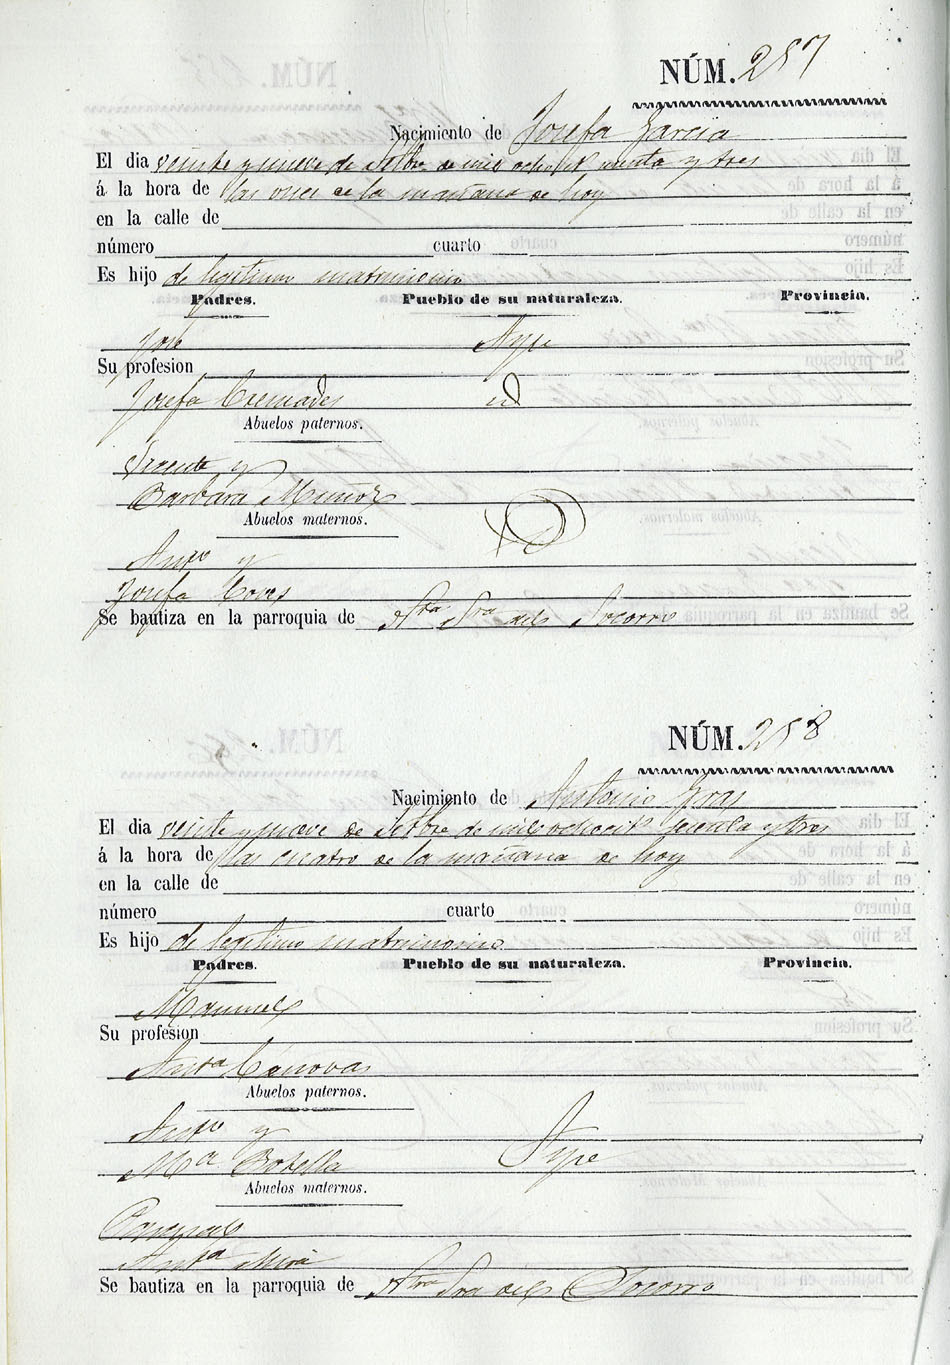 NÚM. 257
Nacimiento de Josefa Garcia
El dia veinte y nueve de Setbre de mil ochot. y tres
á la hora de las once de la mañana de hoy
en la calle de
número cuarto
Es hijo de legitimo matrimonio
Padres. Pueblo de su naturaleza. Provincia.
José Aspe
Su profesion
Josefa Cremades id
Abuelos paternos.
Vicente y
Barbara Muñoz
Abuelos maternos.
Antº y
Josefa Coves
Se bautiza en la parroquia de Ntra Sra del Socorro
NÚM. 258
Nacimiento de Antonio Gras
El dia veinte y nueve de Setbre de mil ochocits sesenta y tres
á la hora de las cuatro de la mañana de hoy
en la calle de
número cuarto
Es hijo de legitimo matrimonio
Padres. Pueblo de su naturaleza. Provincia.
Manuel
Su profesion
Anta Cánovas
Abuelos paternos.
Antº y
Mª Botella Aspe
Abuelos maternos.
Pascual
Anta Mira
Se bautiza en la parroquia de Ntra Sra del Socorro